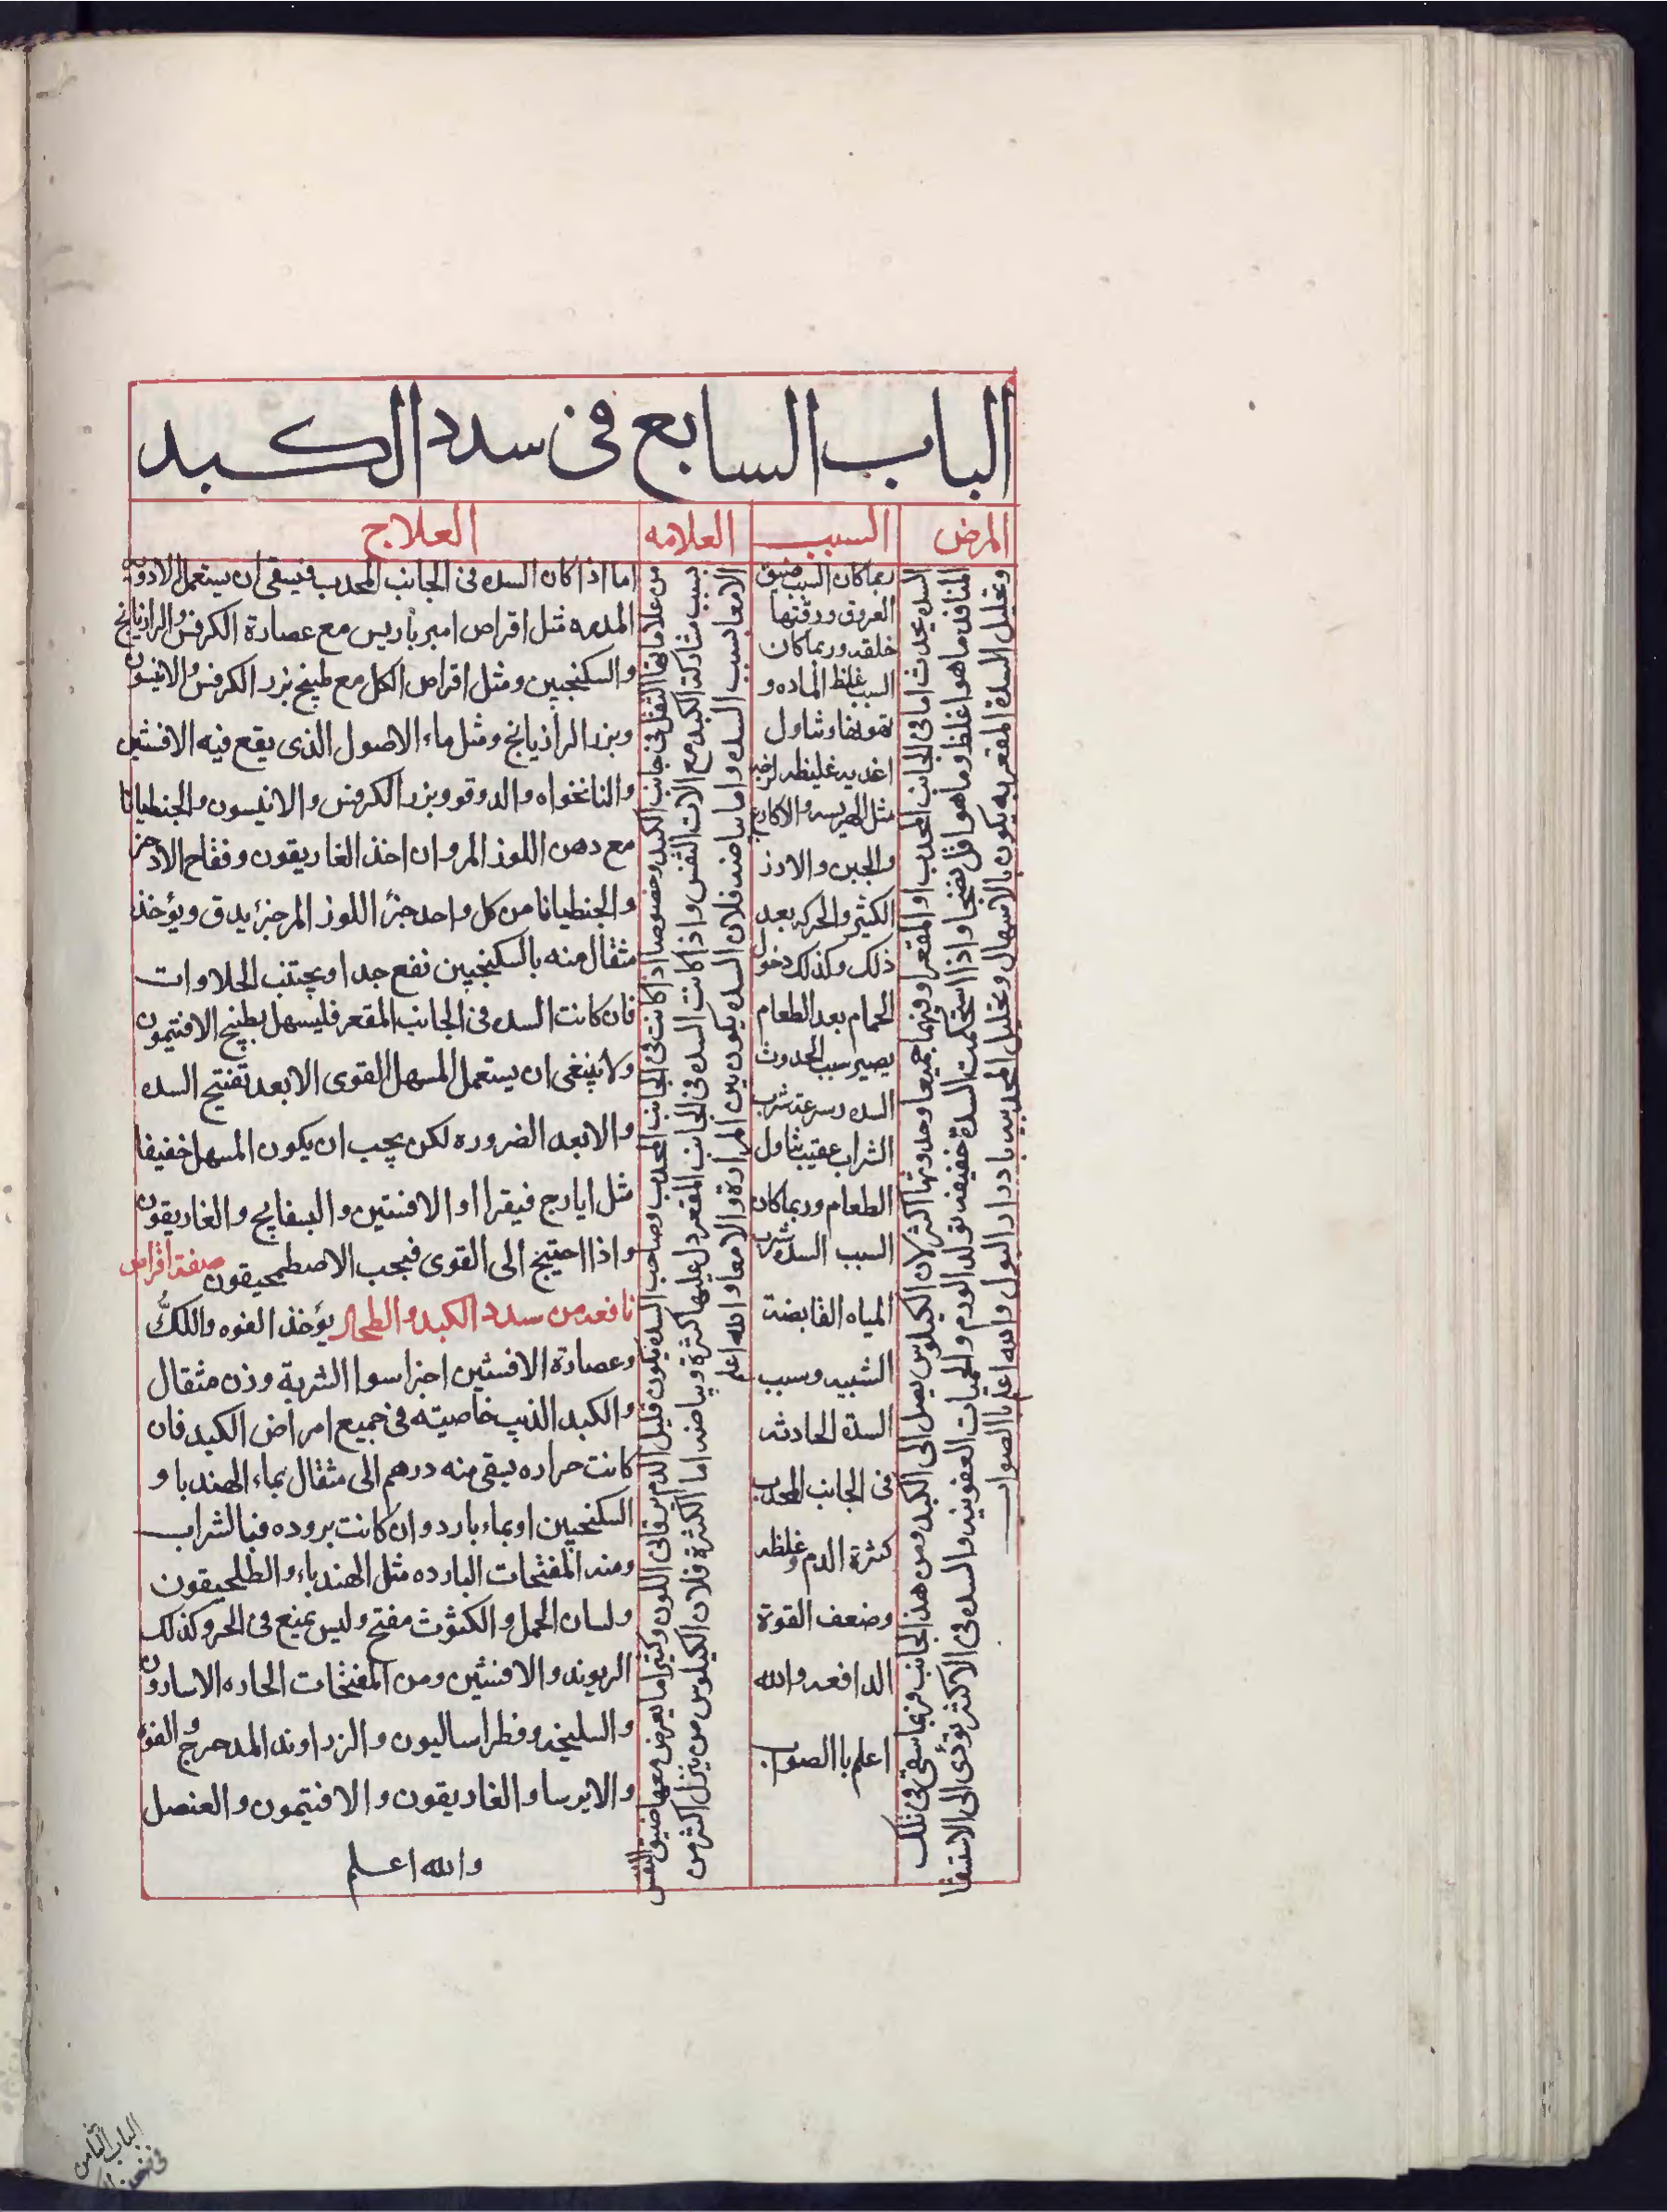 الباب السابع فى سدد الكبد
المرض
السبب
العلامه
العلاج
السده يحدث اما فى الجانب المحدب او المقعر او فيهما جميعا وحدوثها اكثر لان الكيلوس يصل الى الكبد ومن هذ الجانب فربما سقى فى تلك
المنافذ ما هو اغلظ وما هو اقل نضجا واذا استحكمت السدة خفيفه تولد الورم والحميات العفونيه والسده فى الاكثر تؤدى الى الاستسقا
وتحليل السدة المقعريه يكون بالاسهال وتحليل المحدبيه بادرار البول والله اعلم باالصواب
ربما كان السبب ضيق
العروق ورقتها
خلقه وربما كان
السبب غلظ الماده و
وتناول
اغذيه غليظه
مثل الهريسه والاكارع
والجبن والارز
الكثير والحركه بعد
ذلك وكذلك دخول
الحمام بعد الطعام
يصير سبب لحدوث
السده وسرعة شرب
الشراب عقيب تناول
الطعام وربما كان
السبب السده شرب
المياه القابضة
الشبيه وسبب
السدة الحادثه
فى الجانب المحدب
كثرة الدم وغلظه
وضعف القوة
الدافعه والله
اعلم باالصواب
من علاماتها الثقل فى جانب الكبد وخصوصا اذا كانت فى الجانب المحدب وصاحب السده يكون قليل الدم يرقانى اللون وكثيرا ما يعرض معها ضيق النفس
بسبب مشاركة الكبد مع الات النفس واذا كانت السده فى الجانب المقعر دل عليها كثرة وبياضه اما الكثرة فلان الكيلوس من ينزل اكثر من
الامعا بسبب السده واما بياضه فلان السده يكون بين المرارة والامعا والله اعلم
اما اذا كان السده فى الجانب المحدب فيسقى ان يستعمل الادويه
المدره مثل اقراص امبرباريس مع عصارة الكرفس والرازيانج
والسكنجبين ومثل اقراص الكل مع طبيخ بزر الكرفس والانيسون
وبزر الراذيانج ومثل ماء الاصول الذى يقع فيه الافسنتين
والنانخواه والدوقو وبزر الكرفس والانيسون والجنطيانا
مع دهن اللوز المر وان اخذ الغاريقون وفقاح الاذخر
والجنطيانا من كل واحد جزء اللوز المر جزء يدق ويؤخذ
مثقال منه بالسكنجبين نفع جدا ويجتنب الحلاوات
فان كانت السده فى الجانب المقعر فليسهل بطبيخ الافتيمون
ولا ينبغى ان يستعمل المسهل القوى الا بعد تفتيح السده
والا بعد الضروره لكن يجب ان يكون المسهل خفيفا
مثل ايارج فيقرا او الافنتين والبسفايج والغاريقون
واذا احتيج الى القوى فبحب الاصطمحيقون صفة اقراص
نافعه من سدد الكبد والطحال يؤخذ الفوه واللكُّ
وعصارة الافسنتين اجزاسوا الشربة وزن مثقال
والكبد الذيب خاصيته فى جميع امراض الكبد فان
كانت حراره يسقى منه درهم الى مثقال بماء الهندبا و
السكنجبين او بماء بارد وان كانت بروده فبالشراب
ومنه المفتحات البارده مثل الهندباء والطلحيقون
ولسان الحمل والكشوث مفتح وليس يمنع فى الحر وكذلك
الريوند والافسنتين ومن المفتحات الحاره الاسارون
والسليخه وفطراساليون والزراوند المدحرج والفوه
والايرسا والغاريقون والافتيمون والعنصل
والله اعلم
الباب الثامن